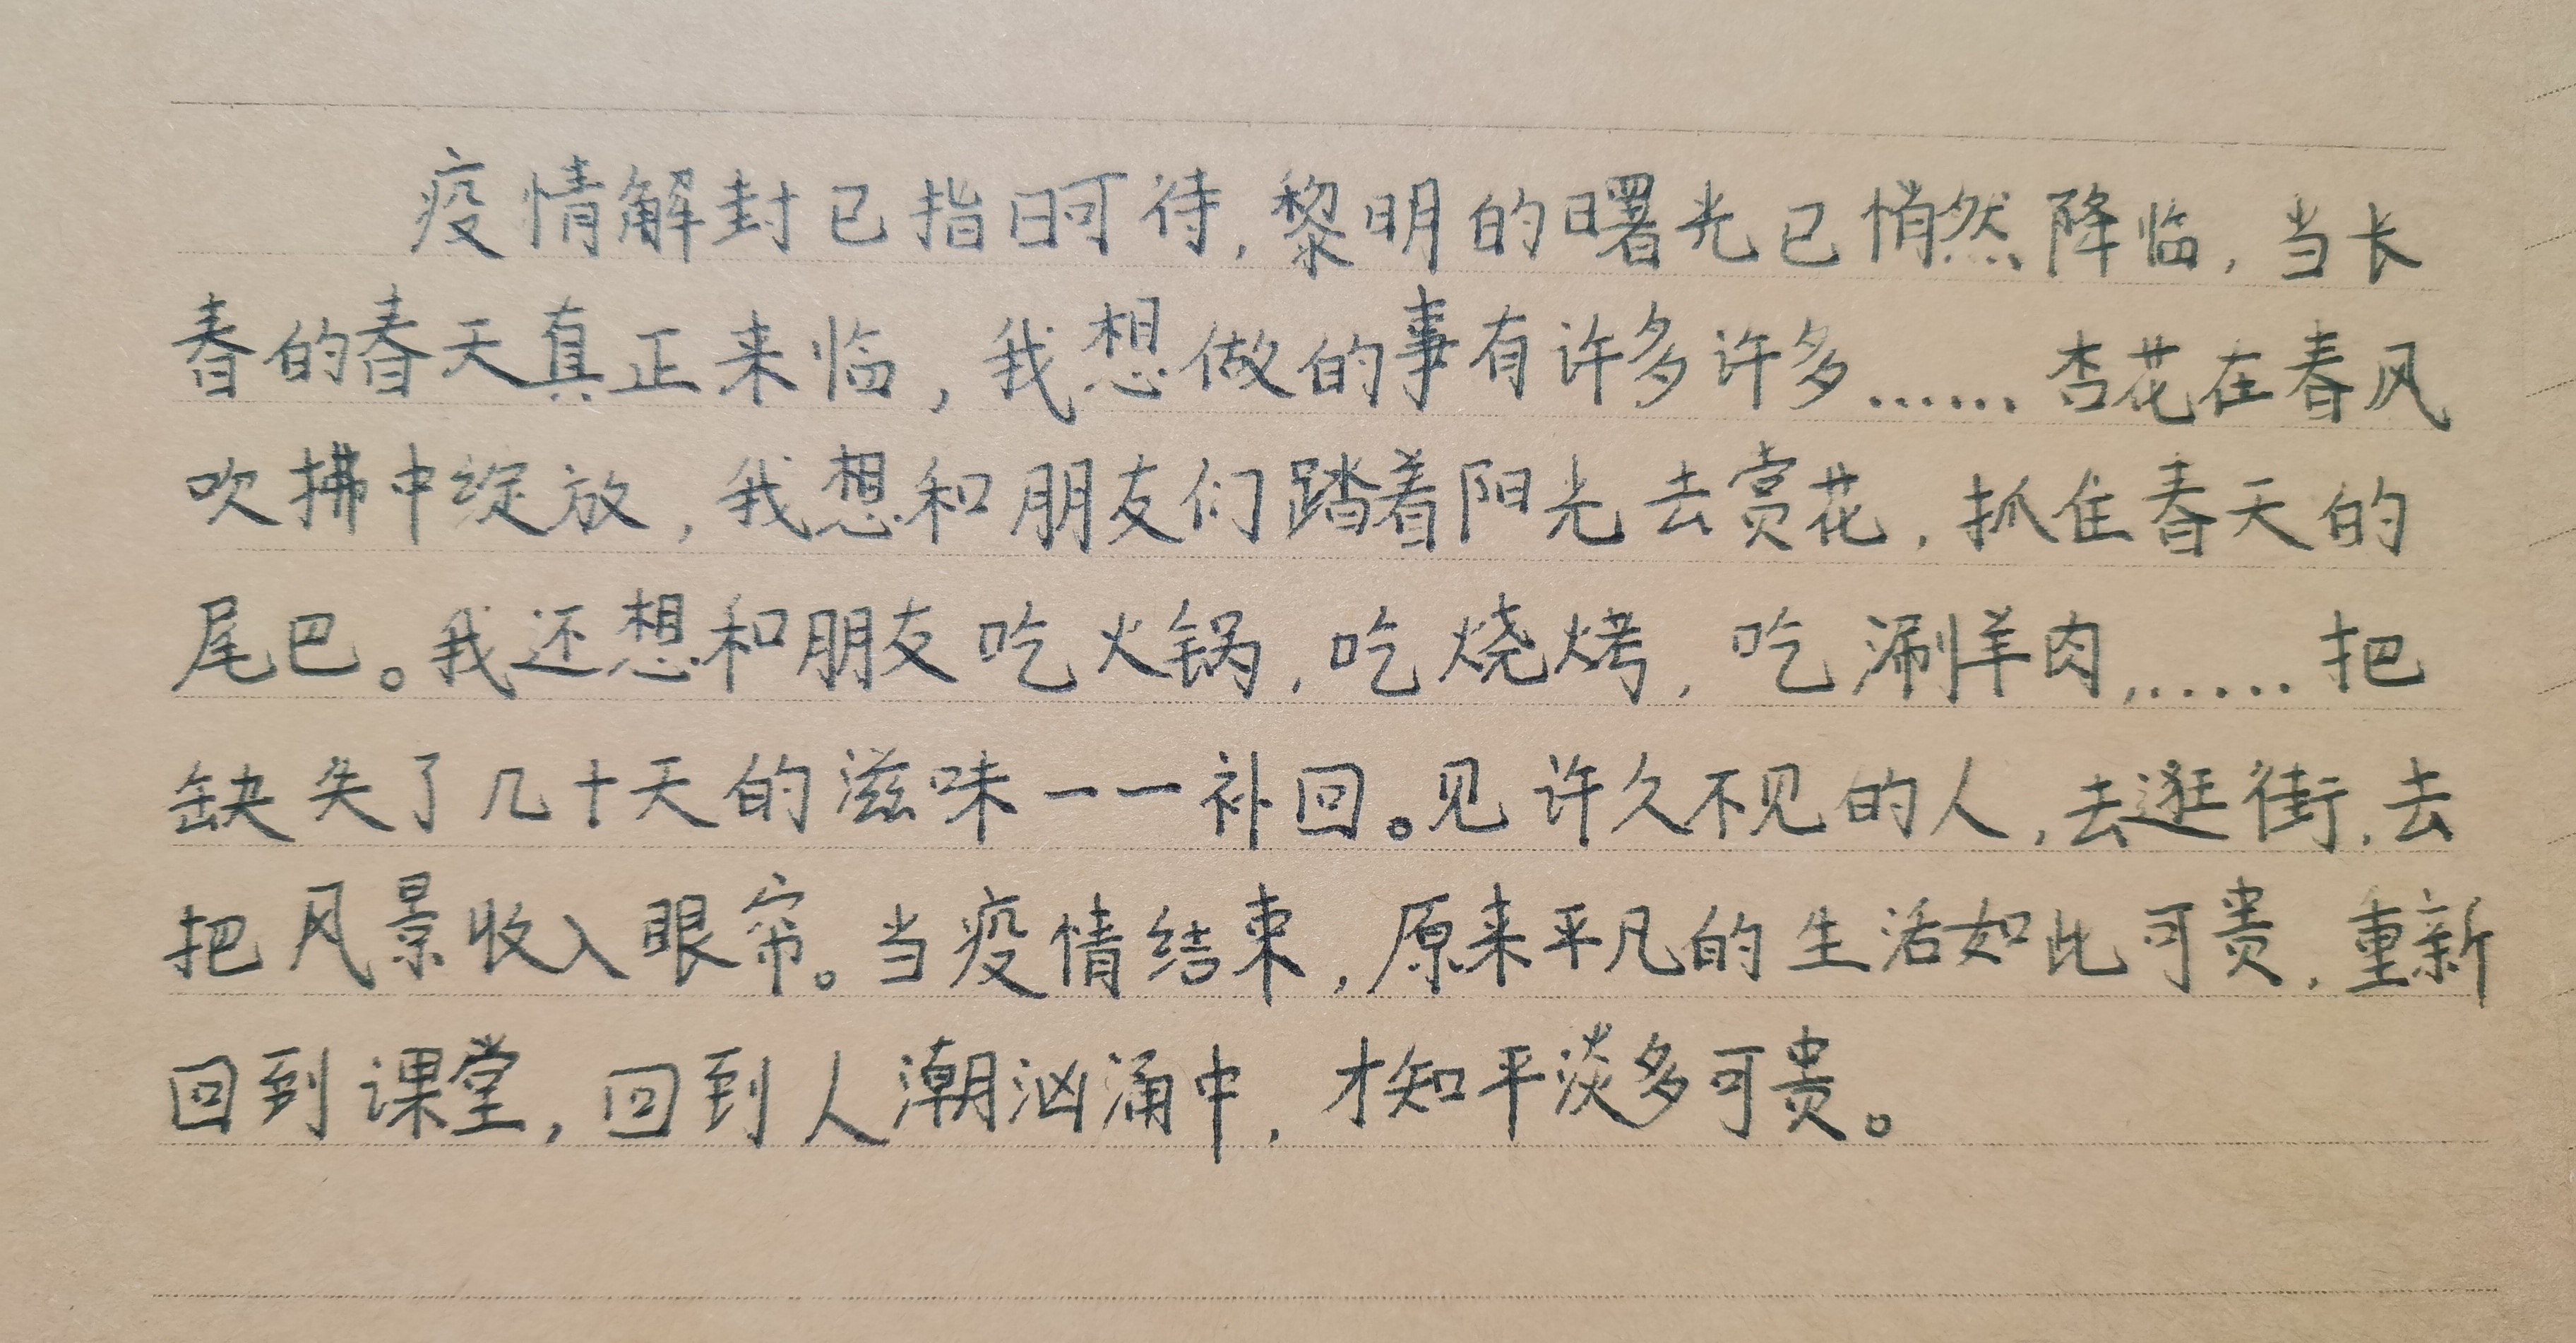 疫情解封已指日可待,黎明的曙光已悄然降临,当长
春的春天真正来临,我想做的事有许多许多……杏花在春风
吹拂中绽放,我想和朋友们踏着阳光去赏花,抓住春天的
尾巴。我还想和朋友吃火锅,吃烧烤,吃涮羊肉,……把
缺失了几十天的滋味一一补回。见许久不见的人,去逛街,去
把风景收入眼帘。当疫情结束,原来平凡的生活如此可贵,重新
回到课堂,回到人潮汹涌中,才知平淡多可贵。